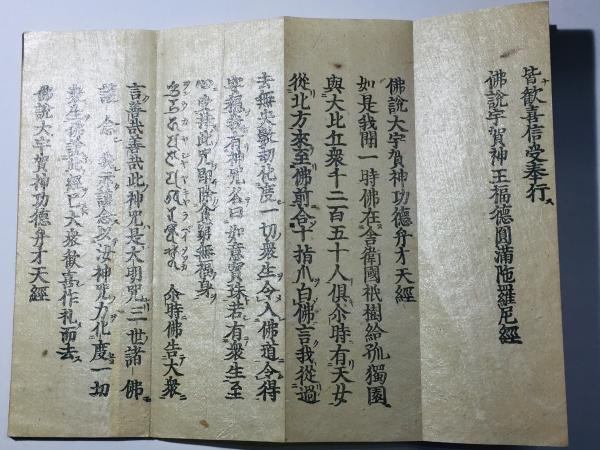 皆歓喜信受奉行
佛説宇賀神王福徳圓滿陁羅尼經
佛説大宇賀神功徳弁才天經
如是我聞一時佛在舎衛國祇樹給孤獨園
與大比丘衆千二百五十人俱尒時有天女
從北方來至佛前合十指爪白佛言我從過
去無央數劫化度一切衆生令入佛道令得
安穏我有神咒名曰如意寳珠若有衆生至
心受持此咒即除貧窮無福身
尒時佛告大衆
言善哉善哉此神咒是大明咒三世諸佛
護念我亦護念以汝神咒力化度一切
衆生佛説此經已大衆歓喜作礼而去
佛説大宇賀神功徳弁才天經